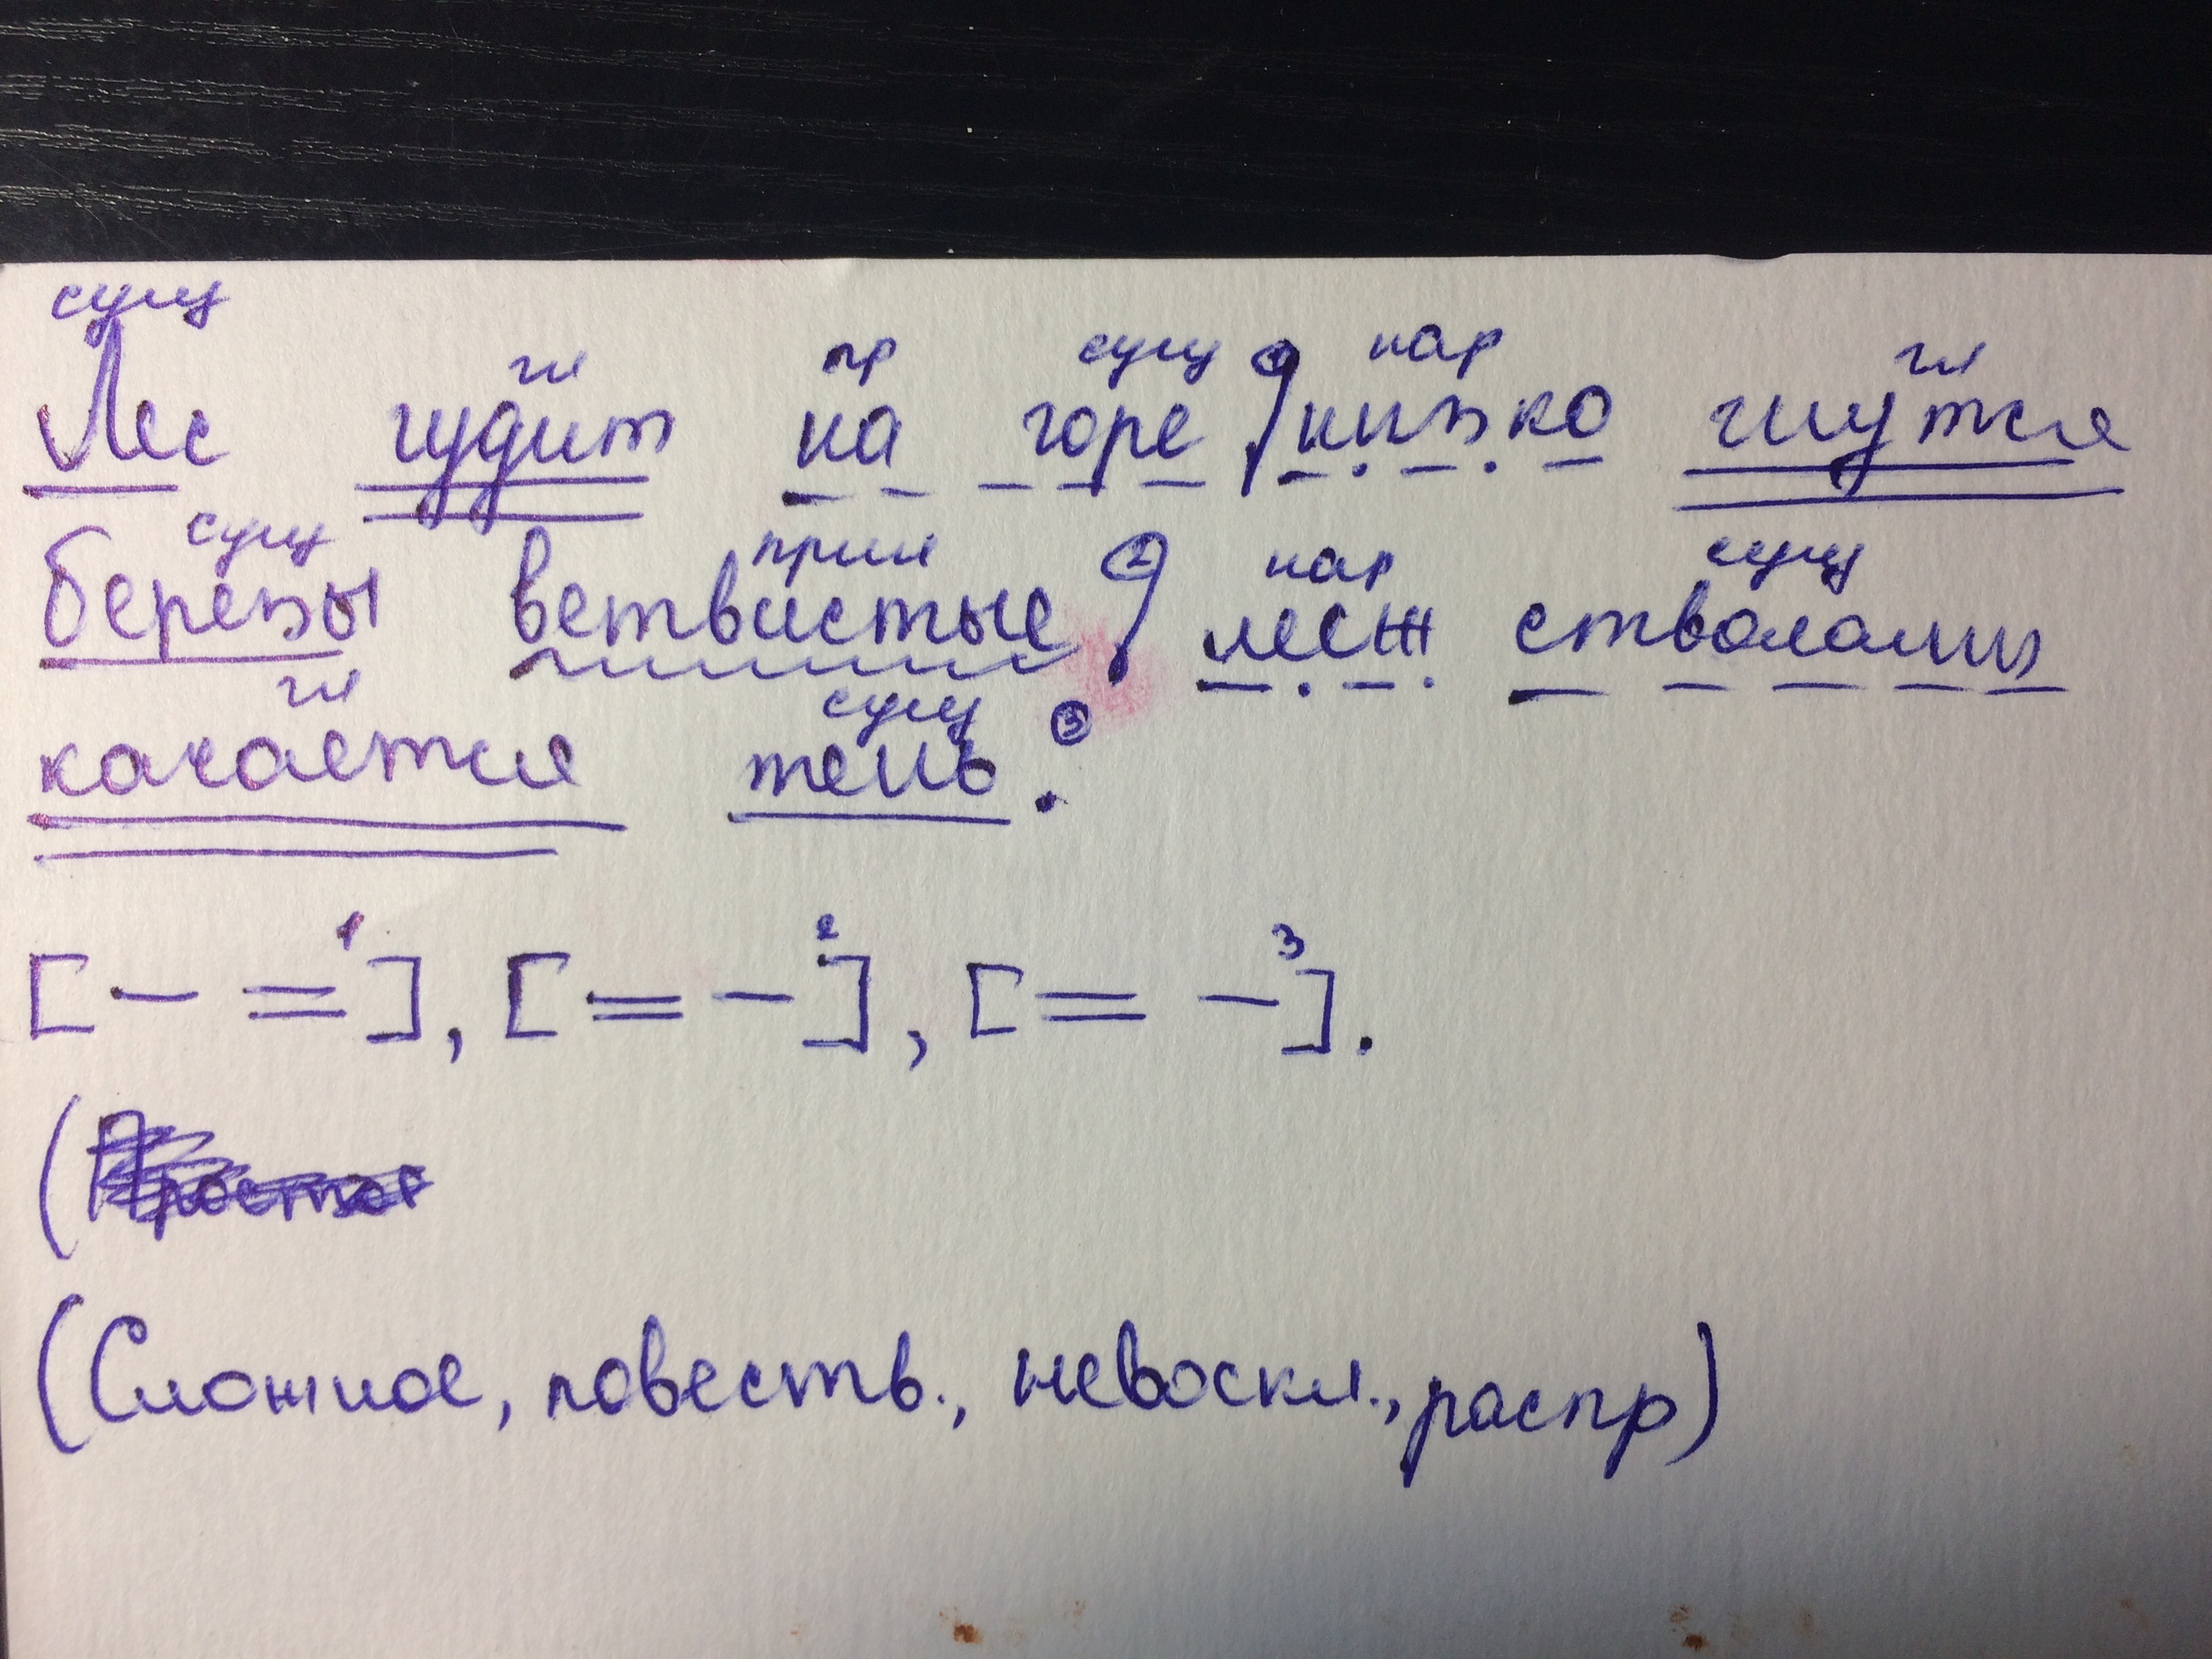 сущ гл пр сущ 1 нар гл
Лес гудит на горе, низко гнутся
сущ прил 2 нар сущ
березы ветвистые, меж стволами
гл сущ 3
качается тень.
1 2 3
[— =], [= —], [= —].
(Простое
(Сложное, повеств., невоскл., распр)